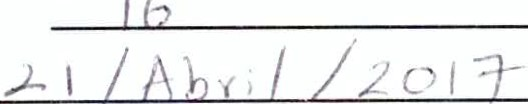 16
21/Abril/2017